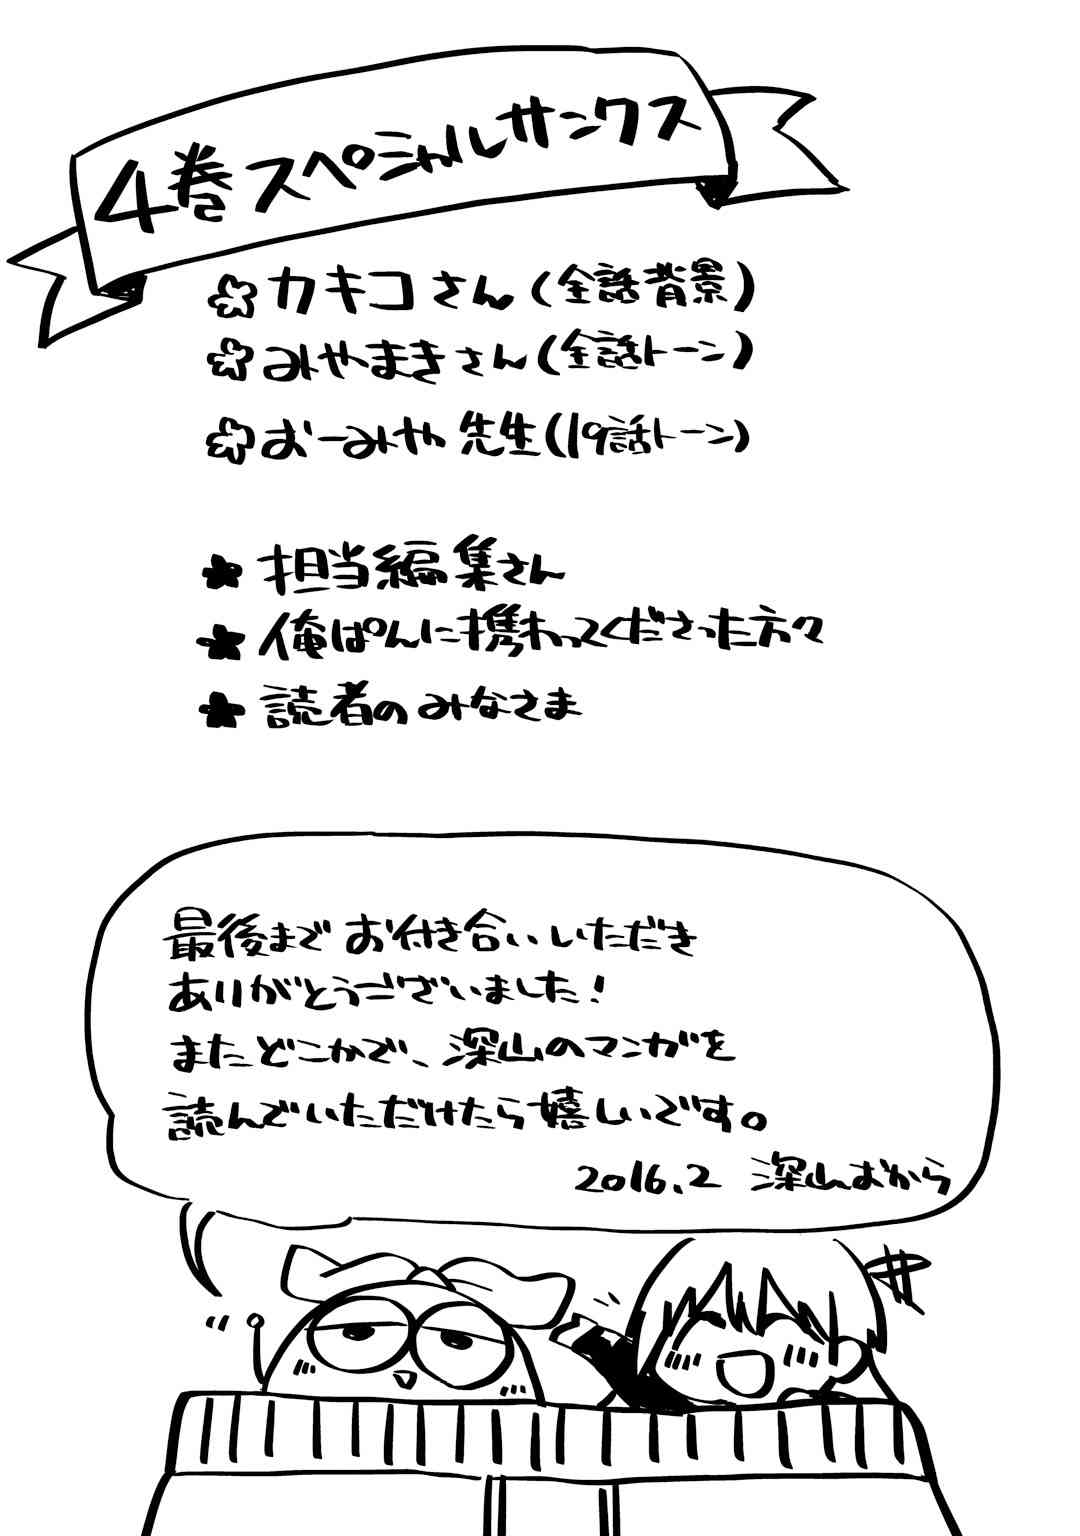 4巻スペシャルサンクス
カキコさん(全話背景)
みやまきさん(全話トーン)
おーみや先生(19話トーン)
★担当編集さん
★俺ぱんに携わってくださった方々
★読者のみなさま
最後までお付き合いいただき
ありがとうございました!
またどこかで、深山のマンガを
読んでいただけたら嬉しいです。
2016.2 深山おから